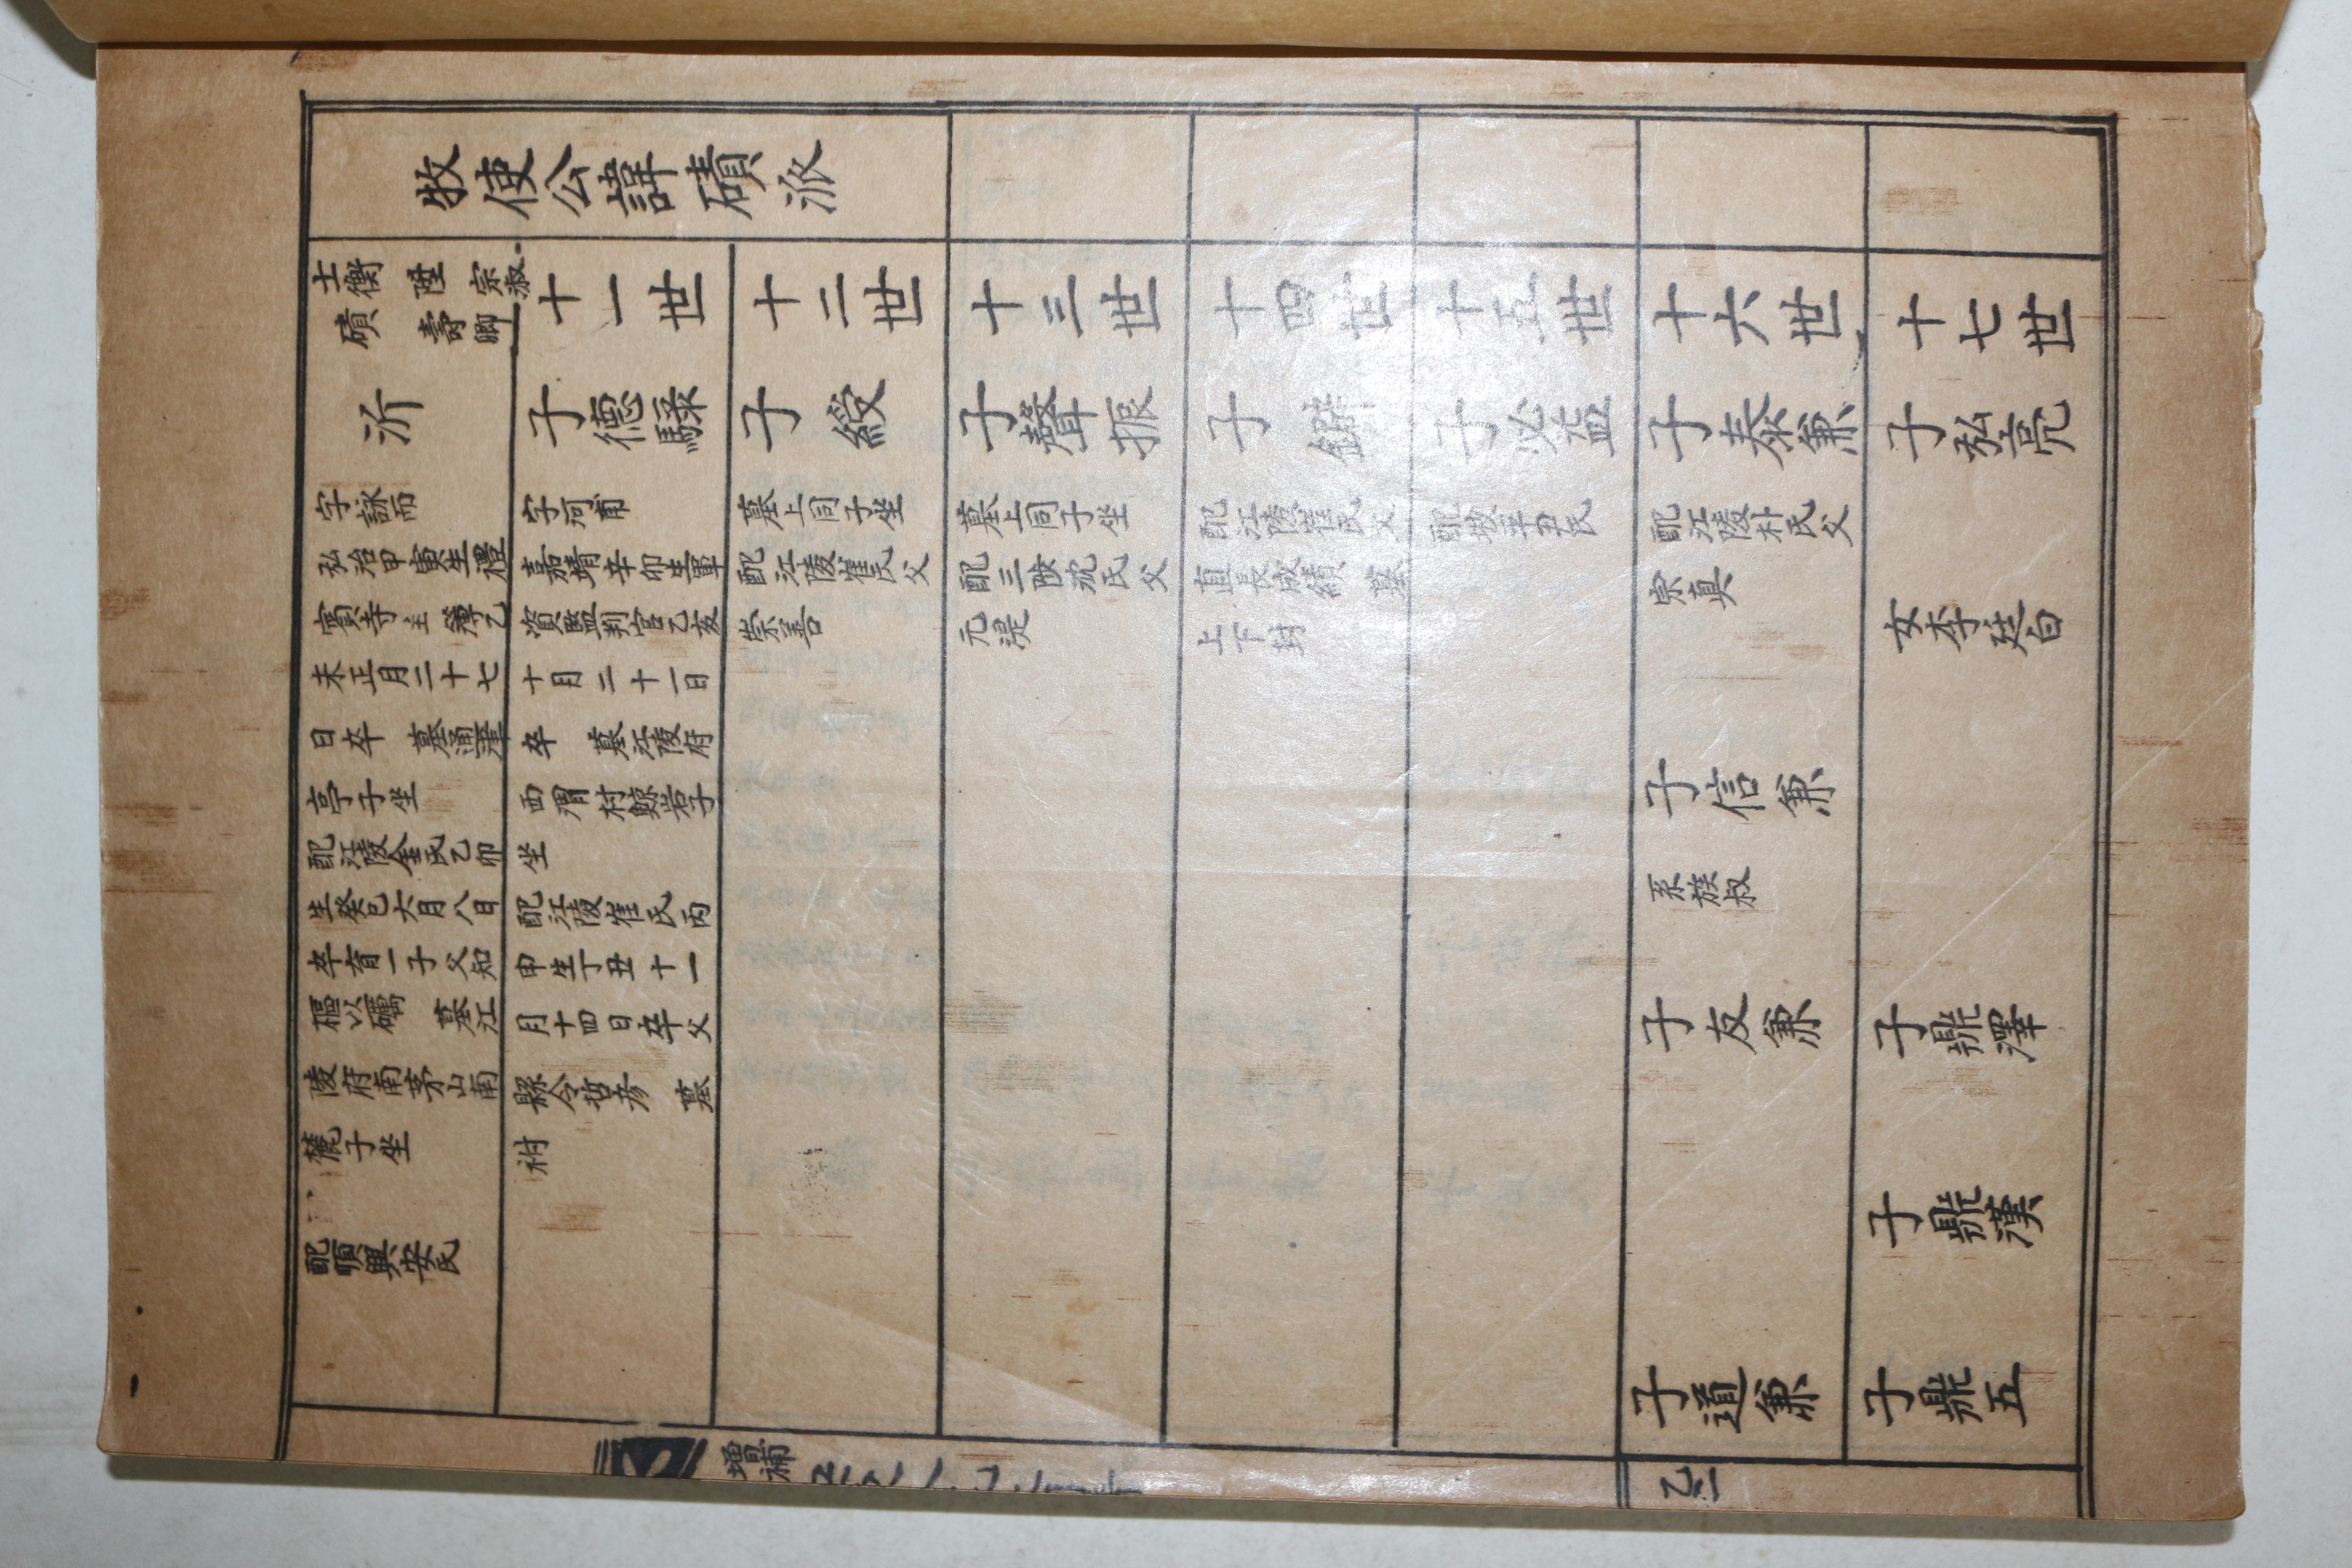 牧使公諱磧派
士衡 陞 宗淑
磧 壽卿
沂
字詠而
弘治甲寅生禮
賓寺主簿乙
未正月二十七
日卒 墓通津
亭子坐
配江陵金氏乙卯
生癸巳六月八日
卒育一子父知
樞以礪 墓江
陵府南茅山南
麓子坐
配順興安氏
十一世
子德騄
字河甫
嘉靖辛卯生軍
資監判官乙亥
十月二十一日
卒 墓江陵府
西渭村鯨岩子
坐
配江陵崔氏丙
申生丁丑十一
月十四日卒父
縣令哲彦 墓
祔
十二世
子綬
墓上同子坐
配江陵崔氏父
崇善
十三世
子聲振
墓上同子坐
配三陟沈氏父
元湜
十四世
子
配江陵崔氏父
直長成績 墓
上下封
十五世
子必益
配坡平尹氏
十六世
子泰兼
配江陵朴氏父
宗眞
子信兼
系族叔
子友兼
子道兼
十七世
子弘亮
女李廷白
子鼎澤
子鼎漢
子鼎五
增補
乙二